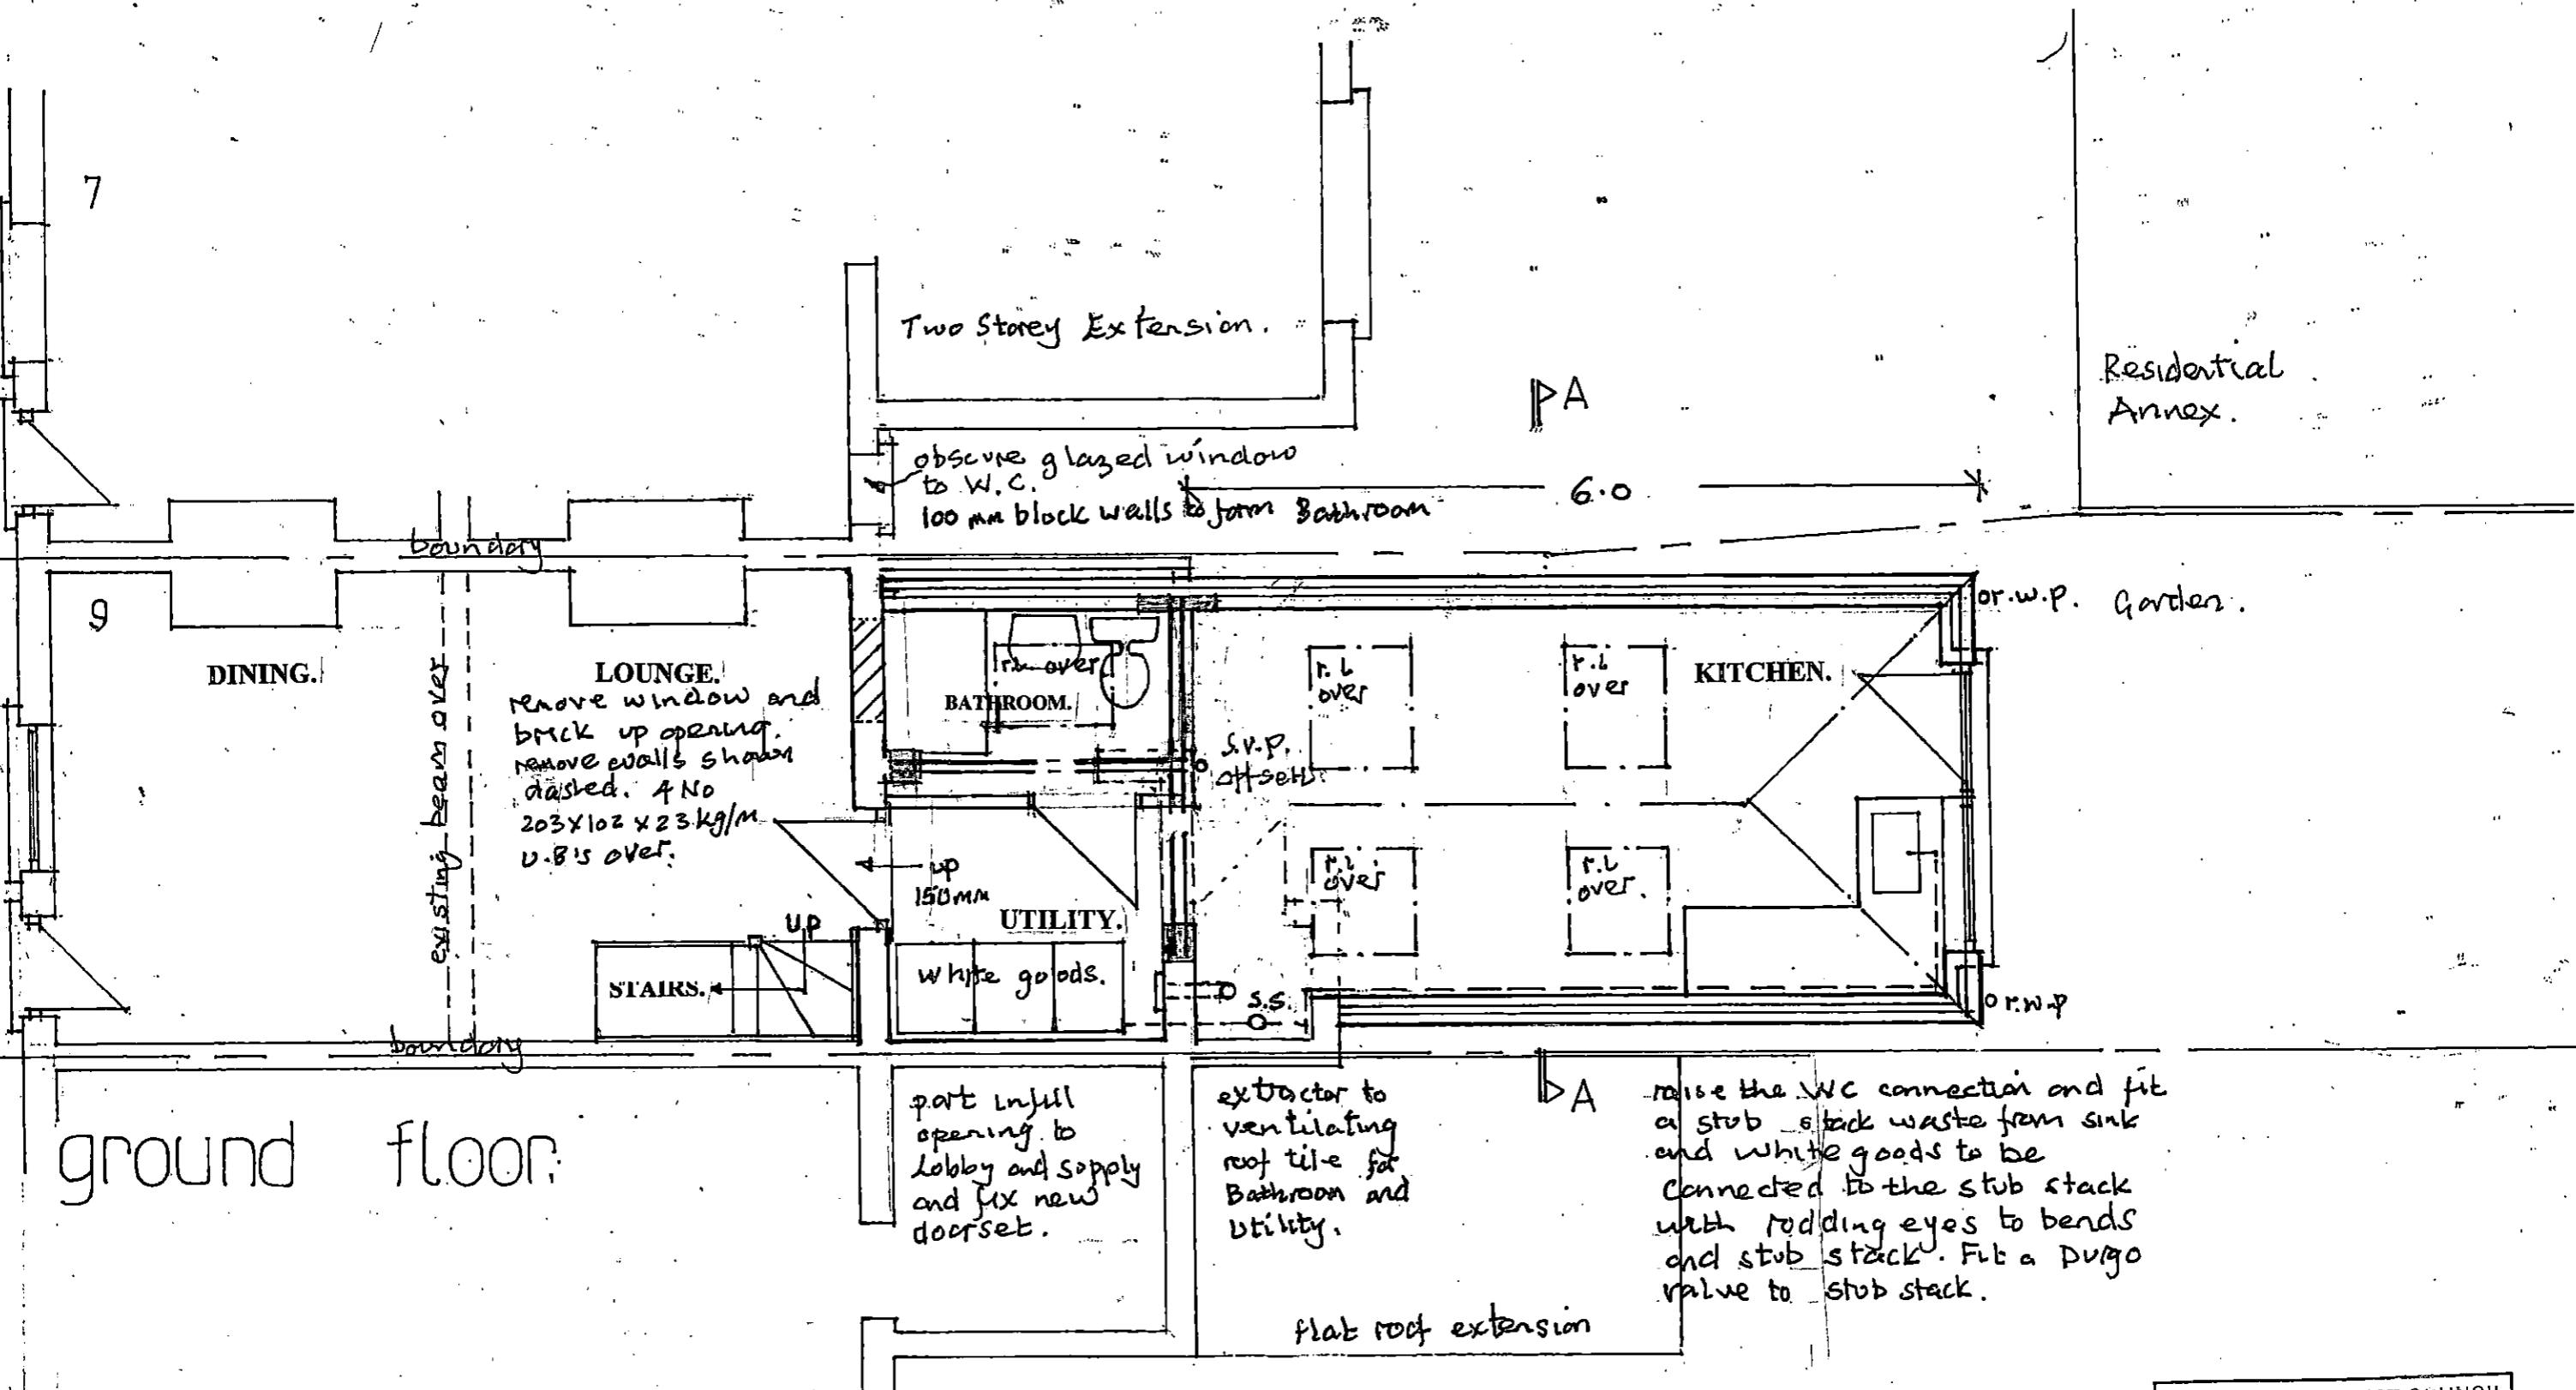 7
Two Storey Extension.
A
Residential
Annex.
obscure glazed window
to W.C.
100 mm block walls to form Bathroom
6.0
boundary
9
or.w.p.
Garden.
DINING.
existing beam over
LOUNGE.
remove window and
brick up opening.
remove walls shown
dashed. 4 No
203x102 x 23 kg/m
U.B's over.
r.l. over
BATHROOM.
s.v.p.
offsett.
r.l
over
r.l
over
KITCHEN.
up
150mm
UTILITY.
r.l.
over
r.l
over.
UP
STAIRS.
white goods.
s.s.
o r.w.p
boundary
A
ground floor.
part infill
opening to
Lobby and supply
and fix new
doorset.
extractor to
ventilating
roof tile for
Bathroom and
Utility.
raise the WC connection and fit
a stub stack waste from sink
and white goods to be
connected to the stub stack
with rodding eyes to bends
and stub stack. Fit a Durgo
valve to stub stack.
flat roof extension